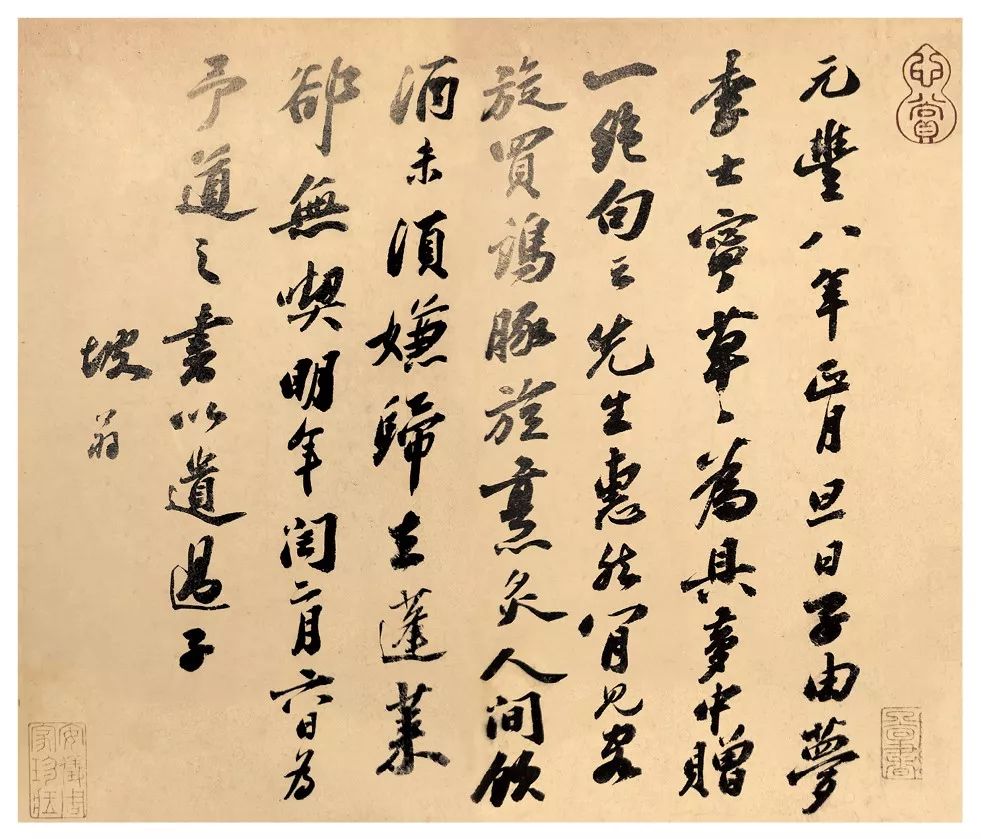 心賞
元豐八年正月旦日子由夢
李士寧草〻為具夢中贈
一絕句云先生惠然肯見客
旋買雞豚旋烹炙人間飲
酒未須嫌歸去蓬萊
卻無喫明年閏二月六日為
予道之書以遺過子
坡翁
安儀周家珍藏